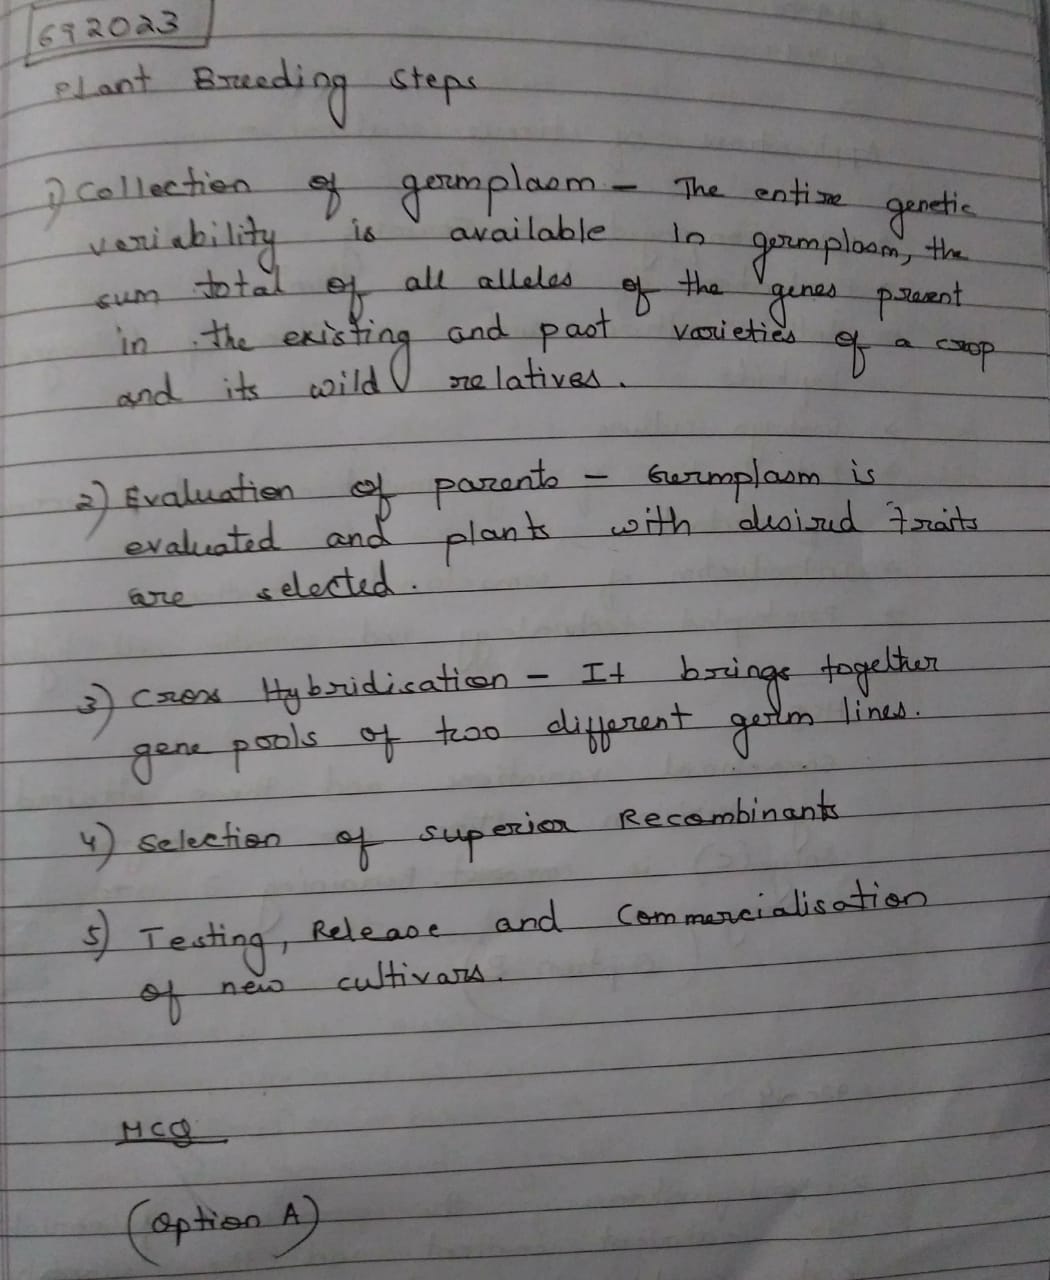 692023
Plant Breeding Steps
1) Collection of germplasm - The entire genetic
variability is available in germplasm, the
sum total of all alleles of the genes present
in the existing and past varieties of a crop
and its wild relatives.
2) Evaluation of parents - Germplasm is
evaluated and plants with desired traits
are selected.
3) Cross Hybridisation - It brings together
gene pools of two different germ lines.
4) Selection of superior Recombinants
5) Testing, Release and Commercialisation
of new cultivars.
MCQ
(Option A)